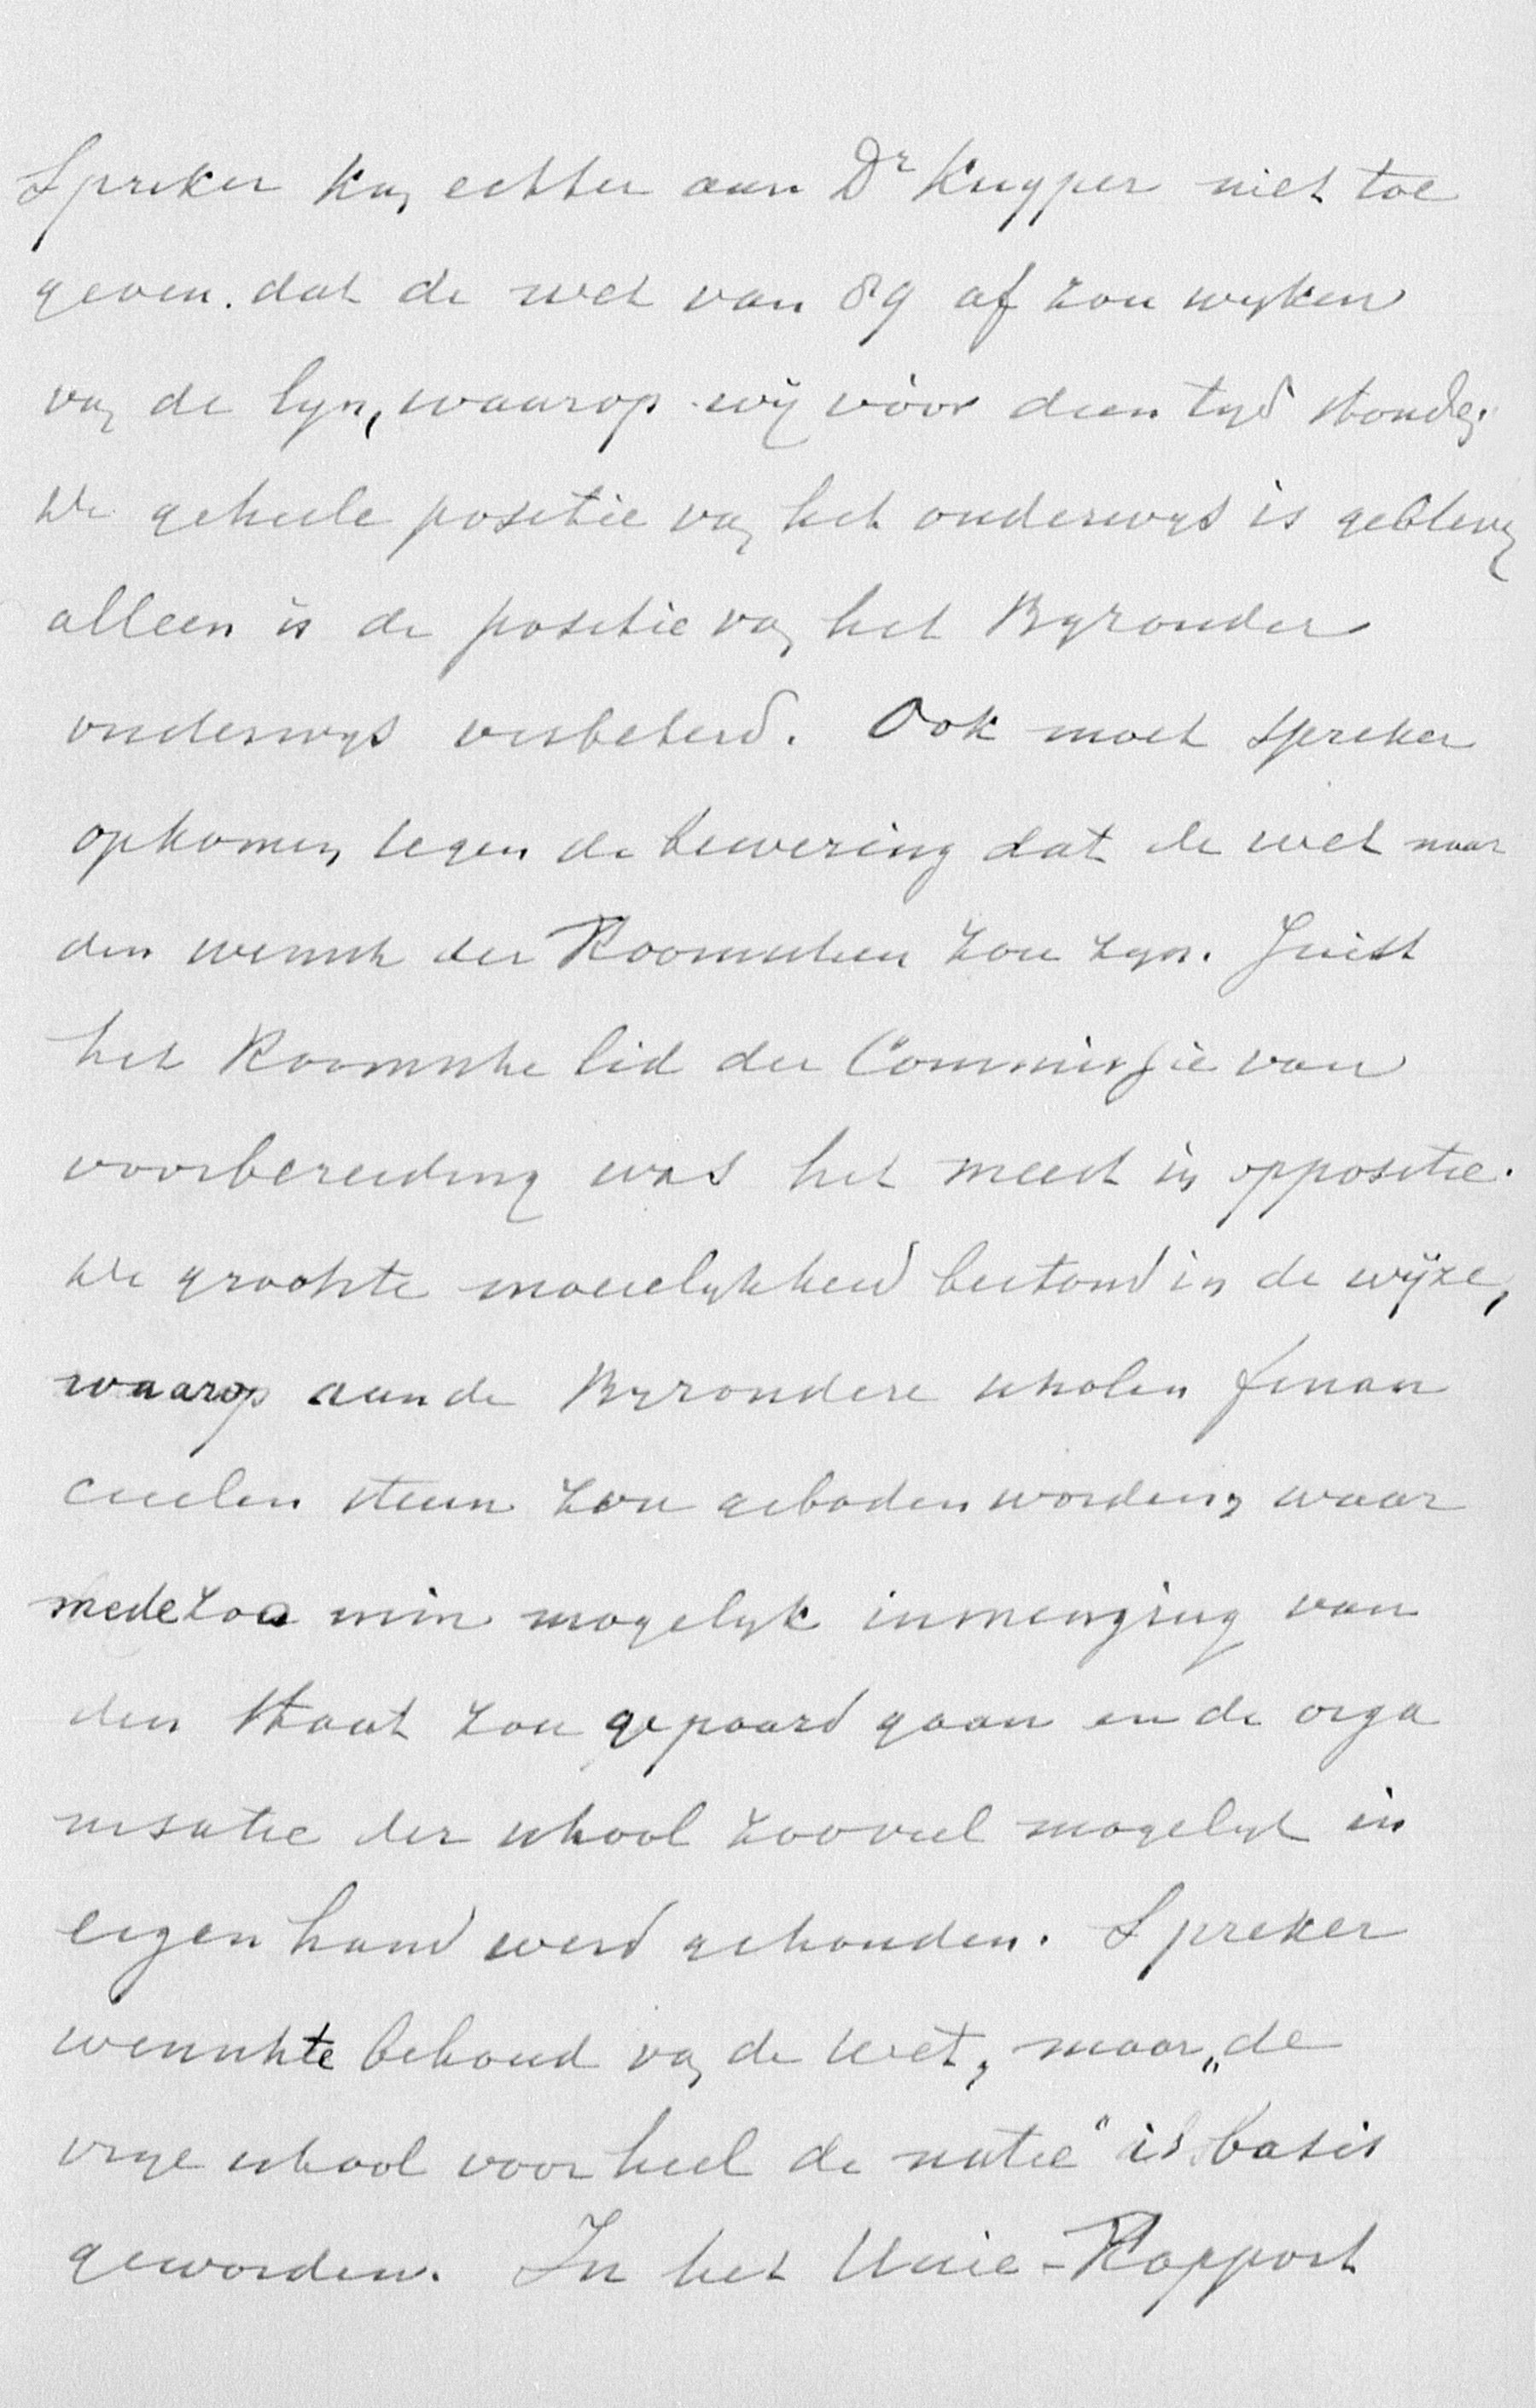 Spreker kan echter aan Dr Kuyper niet toe
geven. dat de wet van 89 af zou wyken
van de lyn, waarop wij vóór dien tyd stonden.
De geheele positie van het onderwys is gebleven
alleen is de positie van het Byzonder
onderwys verbeterd. Ook moet spreker
opkomen tegen de bewering dat de wet naar
den wensch der Roomschen zou zyn. Juist
het Roomsche lid der Commissie van
voorbereiding was het meest in oppositie.
De grootste moeielykheid bestond in de wijze,
waarop aan de Byzondere scholen finan
cieelen steun zou geboden worden, waar
mede zoo min mogelyk inmenging van
den Staat zou gepaard gaan en de orga
nisatie der school zooveel mogelyk in
eigen hand werd gehouden. Spreker
wenschte behoud van de wet, maar „de
vrye school voor heel de natie" is basis
geworden. In het Unie-Rapport